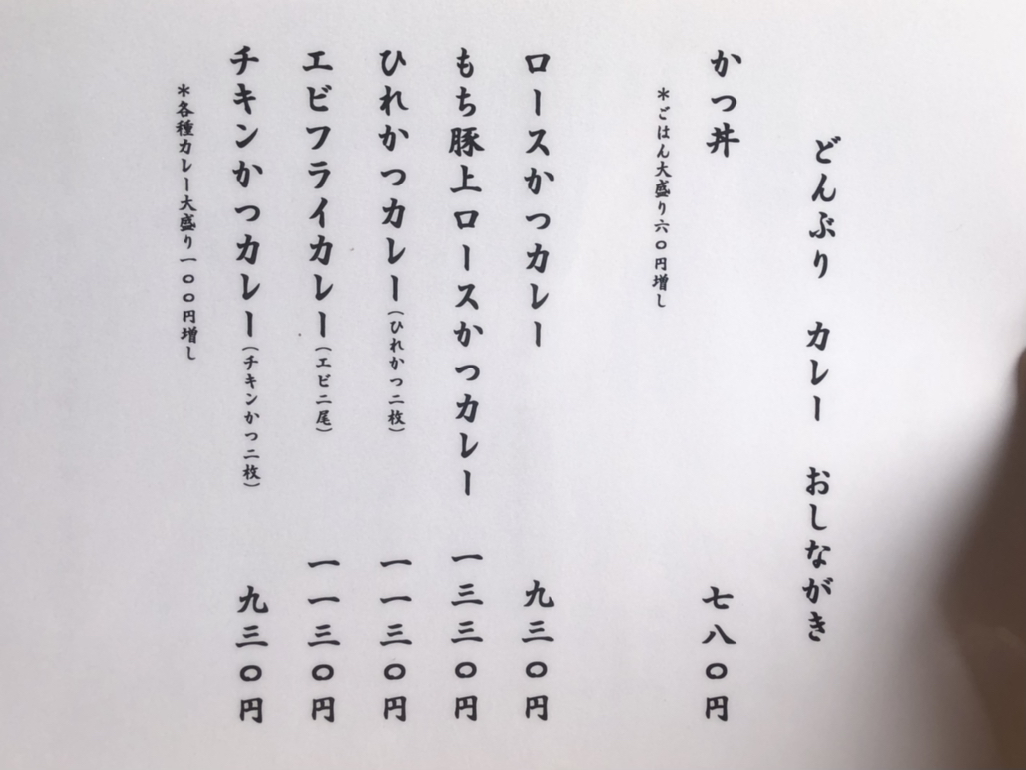 どんぶり　カレー　おしながき
かつ丼　七八〇円
＊ごはん大盛り六〇円増し
ロースかつカレー　九三〇円
もち豚上ロースかつカレー　一三三〇円
ひれかつカレー（ひれかつ二枚）　一一三〇円
エビフライカレー（エビ二尾）　一一三〇円
チキンかつカレー（チキンかつ二枚）　九三〇円
＊各種カレー大盛り一〇〇円増し